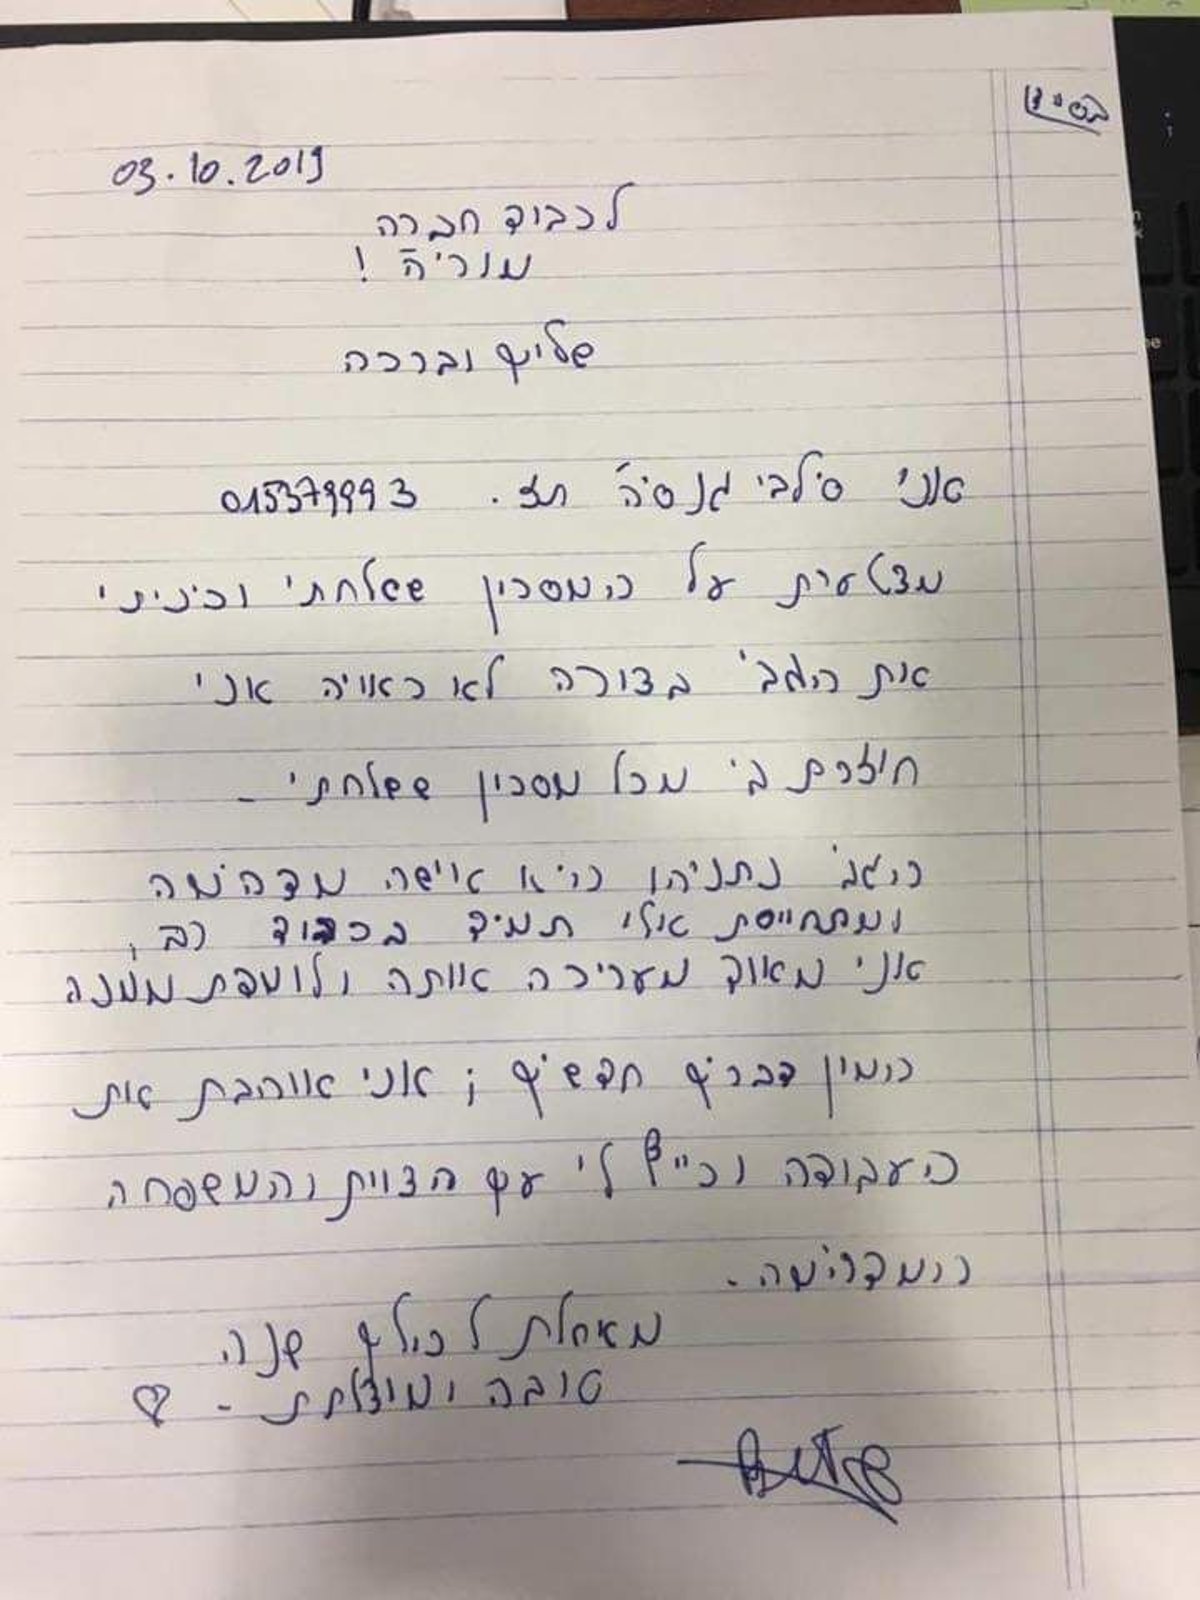 בס״ד
03.10.2019
לכבוד חברה
מוריה !
שלום וברכה
אני סילבי גנסיה תז. 015379993
מצטערת על המסרון ששלחתי וכיניתי
את הגב' בצורה לא ראויה אני
חוזרת בי מכל מסרון ששלחתי -
הגב' נתניהו היא אישה מדהימה
ומתחייסת אלי תמיד בכבוד רב,
אני מאוד מעריכה אותה ולומדת ממנה
המון דברים חדשים ; אני אוהבת את
העבודה וכייף לי עם הצוות והמשפחה
המדהימה -
מאחלת לכולם שנה
טובה ומוצלחת - ♡